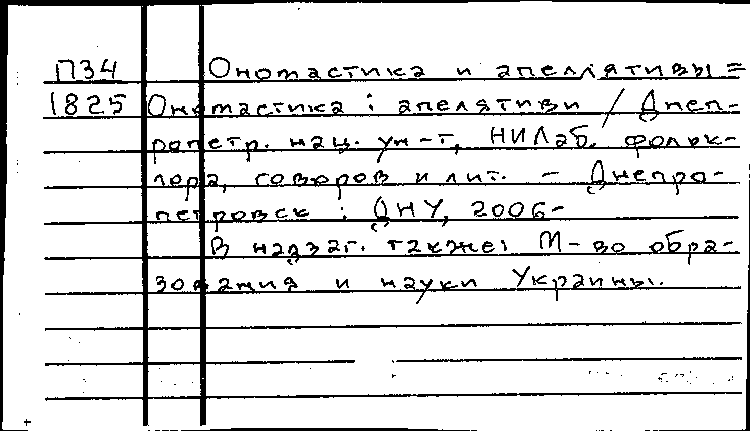 П34 Ономастика и апеллятивы =
1825 Ономастика і апелятиви / Днеп-
ропетр. нац. ун-т, НИЛаб. фольк-
лора, говоров и лит. - Днепро-
петровск : ДНУ, 2006-
В надзаг. также: М-во обра-
зования и науки Украины.